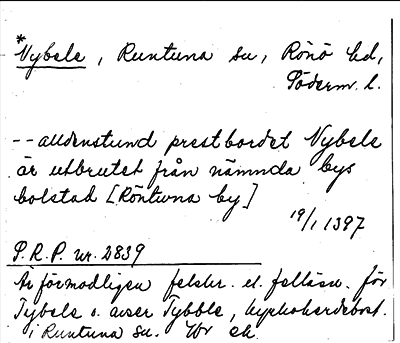 *Nybele, Runtuna sn, Rönö hd,
Söderm. l.
-- alldenstund prestbordet Nybele
är utbrutet från nämnda bys
bolstad [Röntuna by]
19/1 1397
S.R.P. nr. 2839
Är förmodligen felskr. el. felläsn. för
Tybele o. avser Tybble, kyrkoherdebost.
i Runtuna sn.